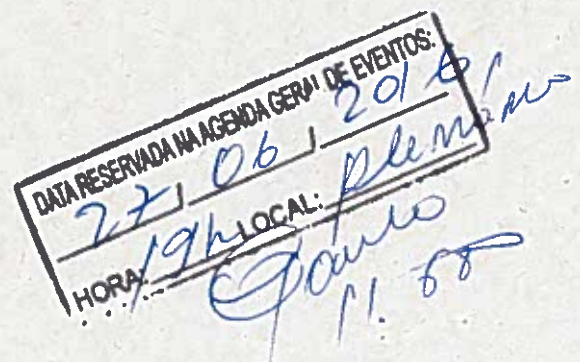 DATA RESERVADA NA AGENDA GERAL DE EVENTOS:
27 / 06 / 2016
HORA: 19h LOCAL: Plenário
Paulo